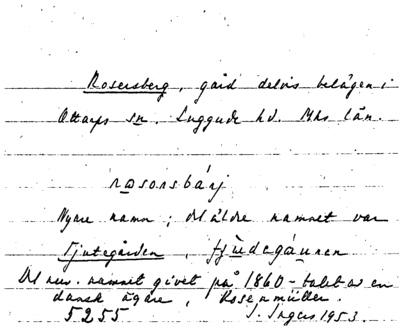 Rosersberg, gård delvis belägen i
Ottarps sn. Luggude hd. Mhs län.
rosorsbárj
Nyare namn; det äldre namnet var
Tjutegården,
Det nuv. namnet givet på 1860-talet av en
dansk ägare, Rosenmüller.
5255
S. Ingers 1953.